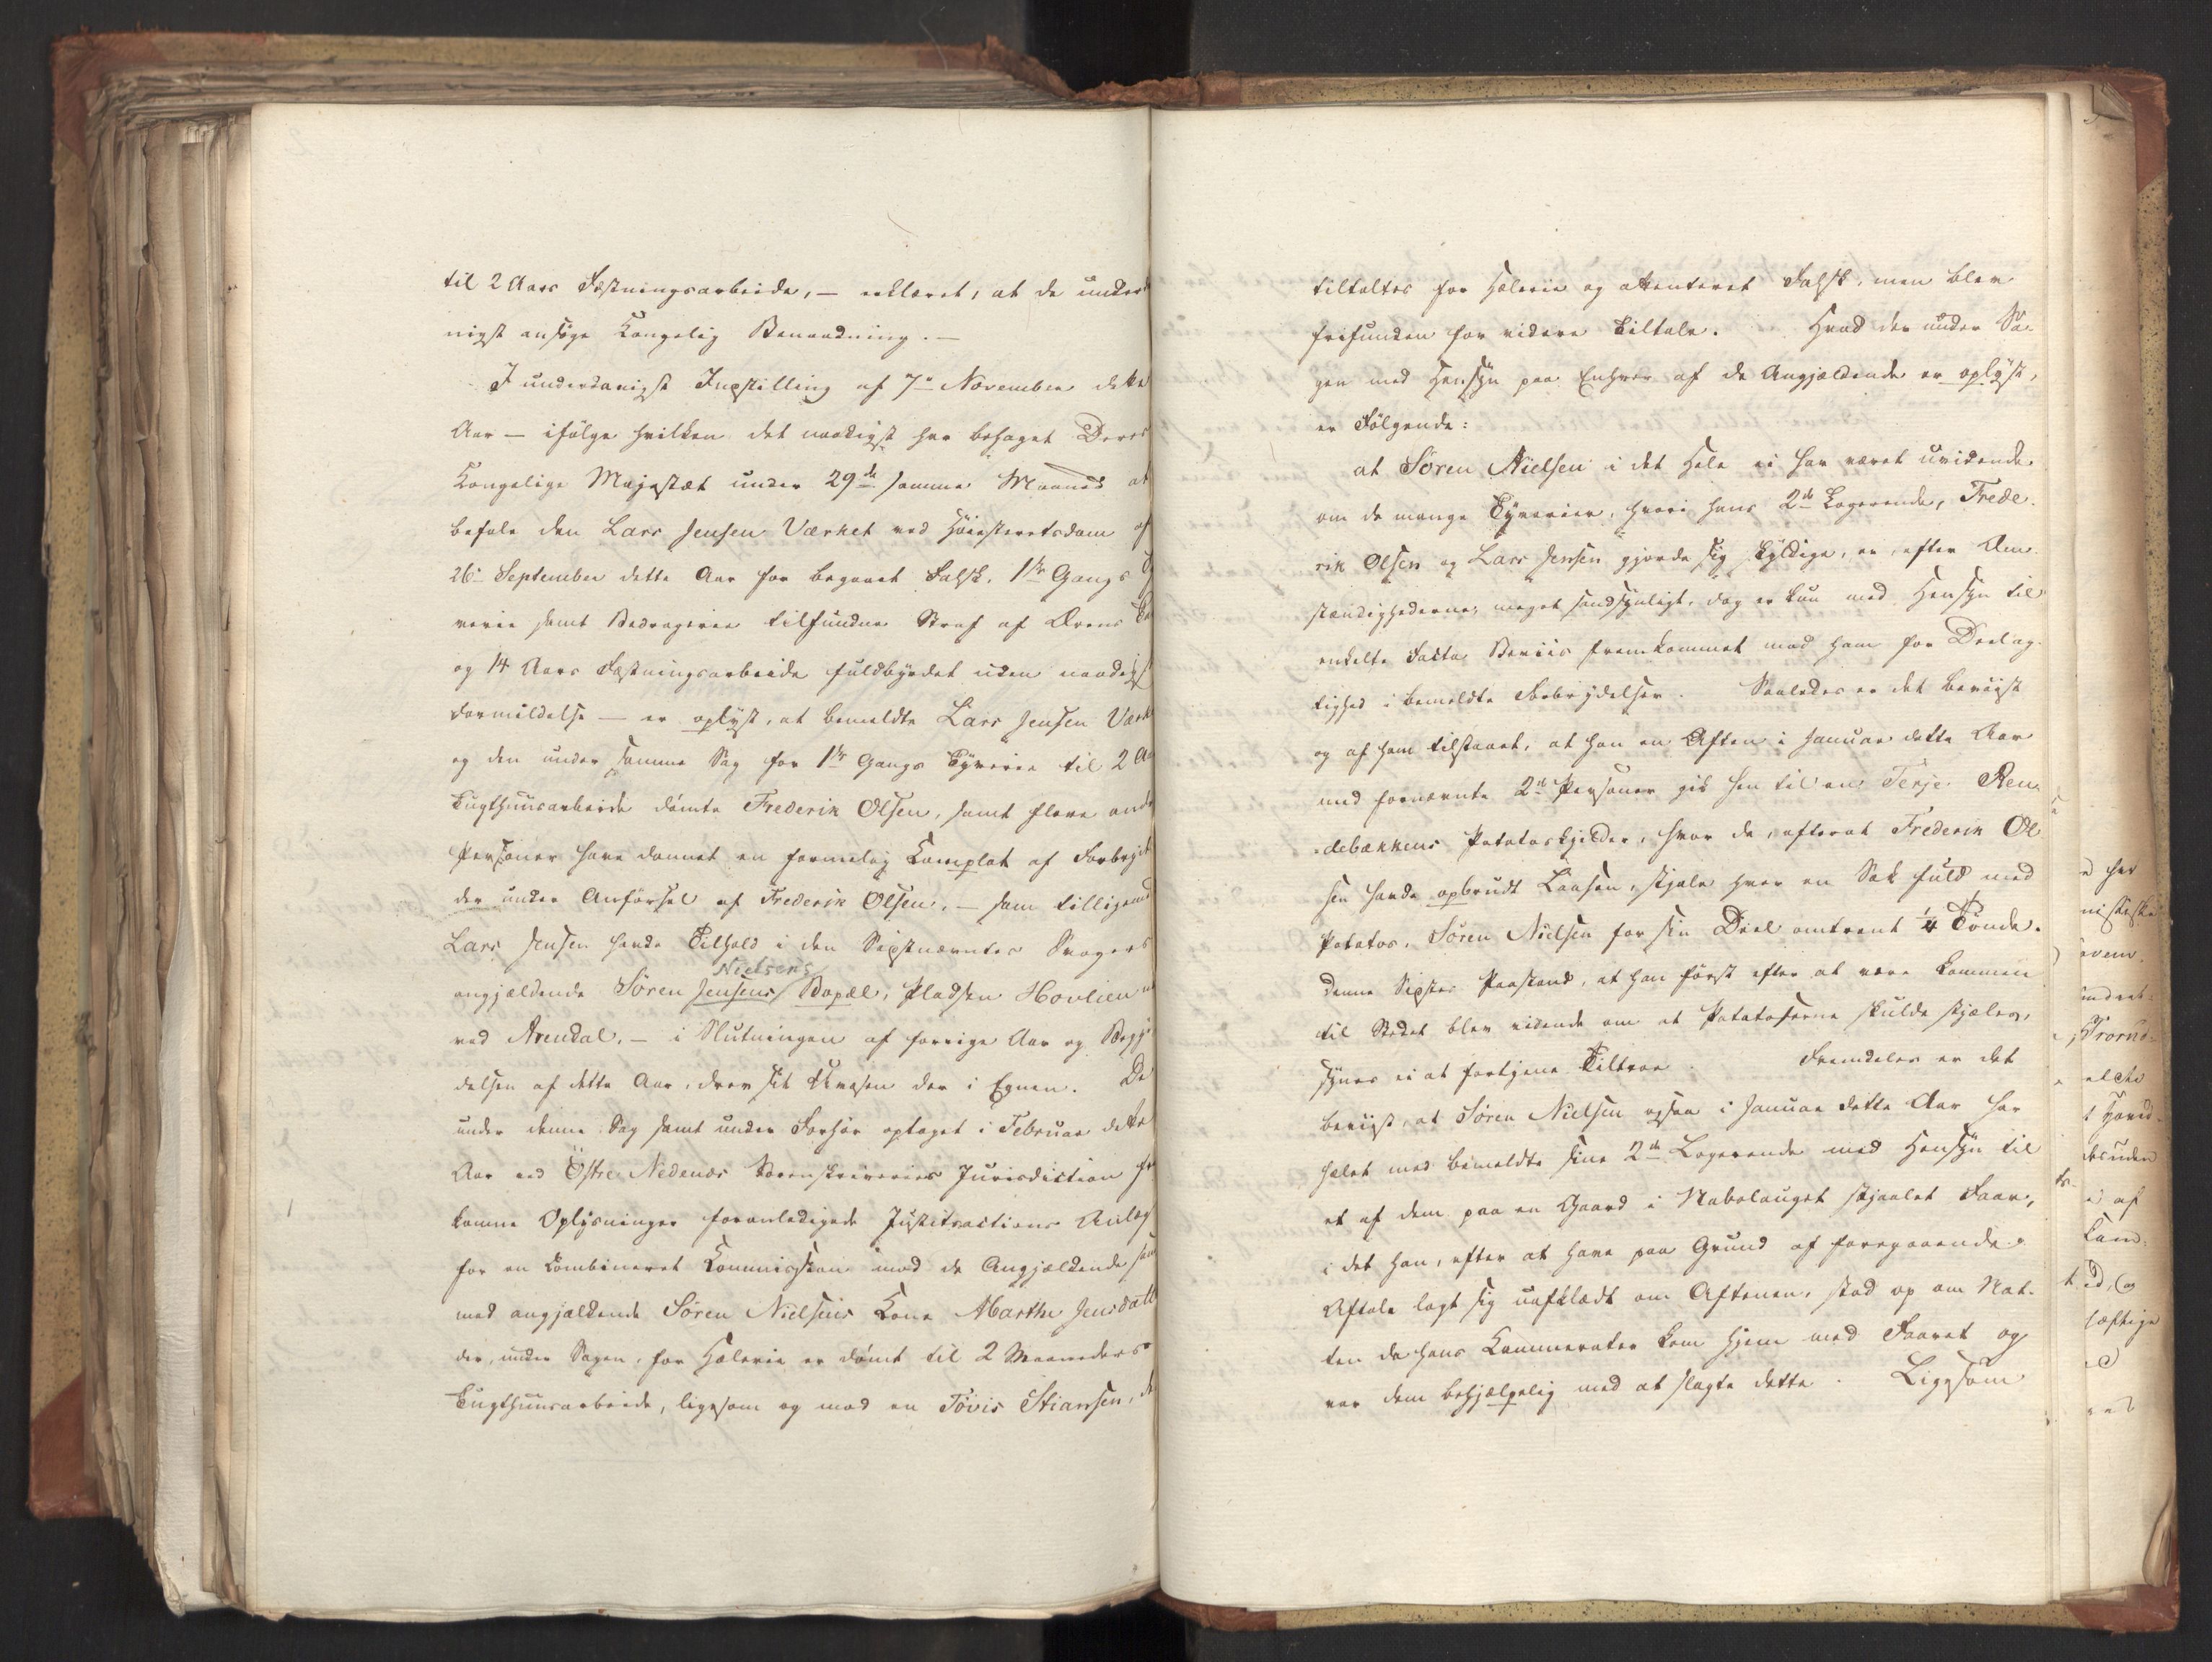 til 2 Aars Fæstningsarbeide, — erklæret, at de underd
nigst ansøge Kongelig Benaadning. —
I underdanigst Indstilling af 7de November dette
Aar — ifølge hvilken det naadigst har behaget Deres
Kongelige Majestæt under 29de samme Maaned at
befale den Lars Jensen Værket ved Høiesteretsdom af
26de September dette Aar for begaaet Falsk, 1ste Gangs Ty
verie samt Bedragerie tilfundne Straf af Ærens Ta
og 14 Aars Fæstningsarbeide fuldbyrdet uden naadigst
Formildelse — er oplyst, at bemeldte Lars Jensen Værk
og den under samme Sag for 1ste Gangs Tyverie til 2 Aa
Tugthuusarbeide dømte Frederik Olsen, samt flere andr
Personer have dannet en formelig Complot af Forbryd
der under Anførsel af Frederik Olsen, — som tilligemed
Lars Jensen havde Tilhold i den Sidstnævntes Svogers
Nielsens
angjældende Søren Jensens Bopæl, Pladsen Hovlien
ved Arendal, — i Slutningen af forrige Aar og Begyn
delsen af dette Aar, drev sit Uvæsen der i Egnen. De
under denne Sag samt under Forhør optaget i Februar dette
Aar ved Østre Nedenæs Sorenskriveries Jurisdiction fr
komne Oplysninger foranledigede Justitsactions Anlæg
for en Combineret Commission mod de Angjældende sam
mod angjældende Søren Nielsens Kone Marthe Jensdatt
der, under Sagen, for Hælerie er dømt til 2 Maaneders
Tugthuusarbeide, ligesom og mod en Tovis Stiansen, de
1
tiltaltes for Hælerie og attenteret Falsk, men blev
frifunden for videre Tiltale. Hvad der under Sa-
gen med Hensyn paa Enhver af de Angjældende er oplyst,
er Følgende:
at Søren Nielsen i det Hele ei har været uvidende
om de mange Tyverier, hvori hans 2de Logerende, Frede-
rik Olsen og Lars Jensen gjorde sig skyldige, er, efter Om-
stændighederne, meget sandsynligt, dog er kun med Hensyn til
enkelte Facta Beviis fremkommet mod ham for Deelag-
tighed i bemeldte Forbrydelser. Saaledes er det beviist
og af ham tilstaaet, at han en Aften i Januar dette Aar
med fornævnte 2de Personer gik hen til en Terje Ren-
debækkens Potatoskjelder, hvor de, efterat Frederik Ol
sen havde opbrudt Laasen, stjale hver en Sæk fuld med
Potatos, Søren Nielsen for sin Deel omtrent ¼ Tønde.
Denne Sidstes Paastand, at han først efter at være kommen
til Stedet blev vidende om at Potatoserne skulde stjæles,
synes ei at fortjene Tiltroe. Fremdeles er det
beviist, at Søren Nielsen ogsaa i Januar dette Aar har
hælet med bemeldte sine 2de Logerende med Hensyn til
et af dem paa en Gaard i Nabolauget stjaalet Faar,
i det han, efter at have paa Grund af foregaaende
Aftale lagt sig uafklædt om Aftenen, stod op om Nat-
ten da hans Kammerater kom hjem med Faaret og
var dem behjælpelig med at slagte dette. Ligesom